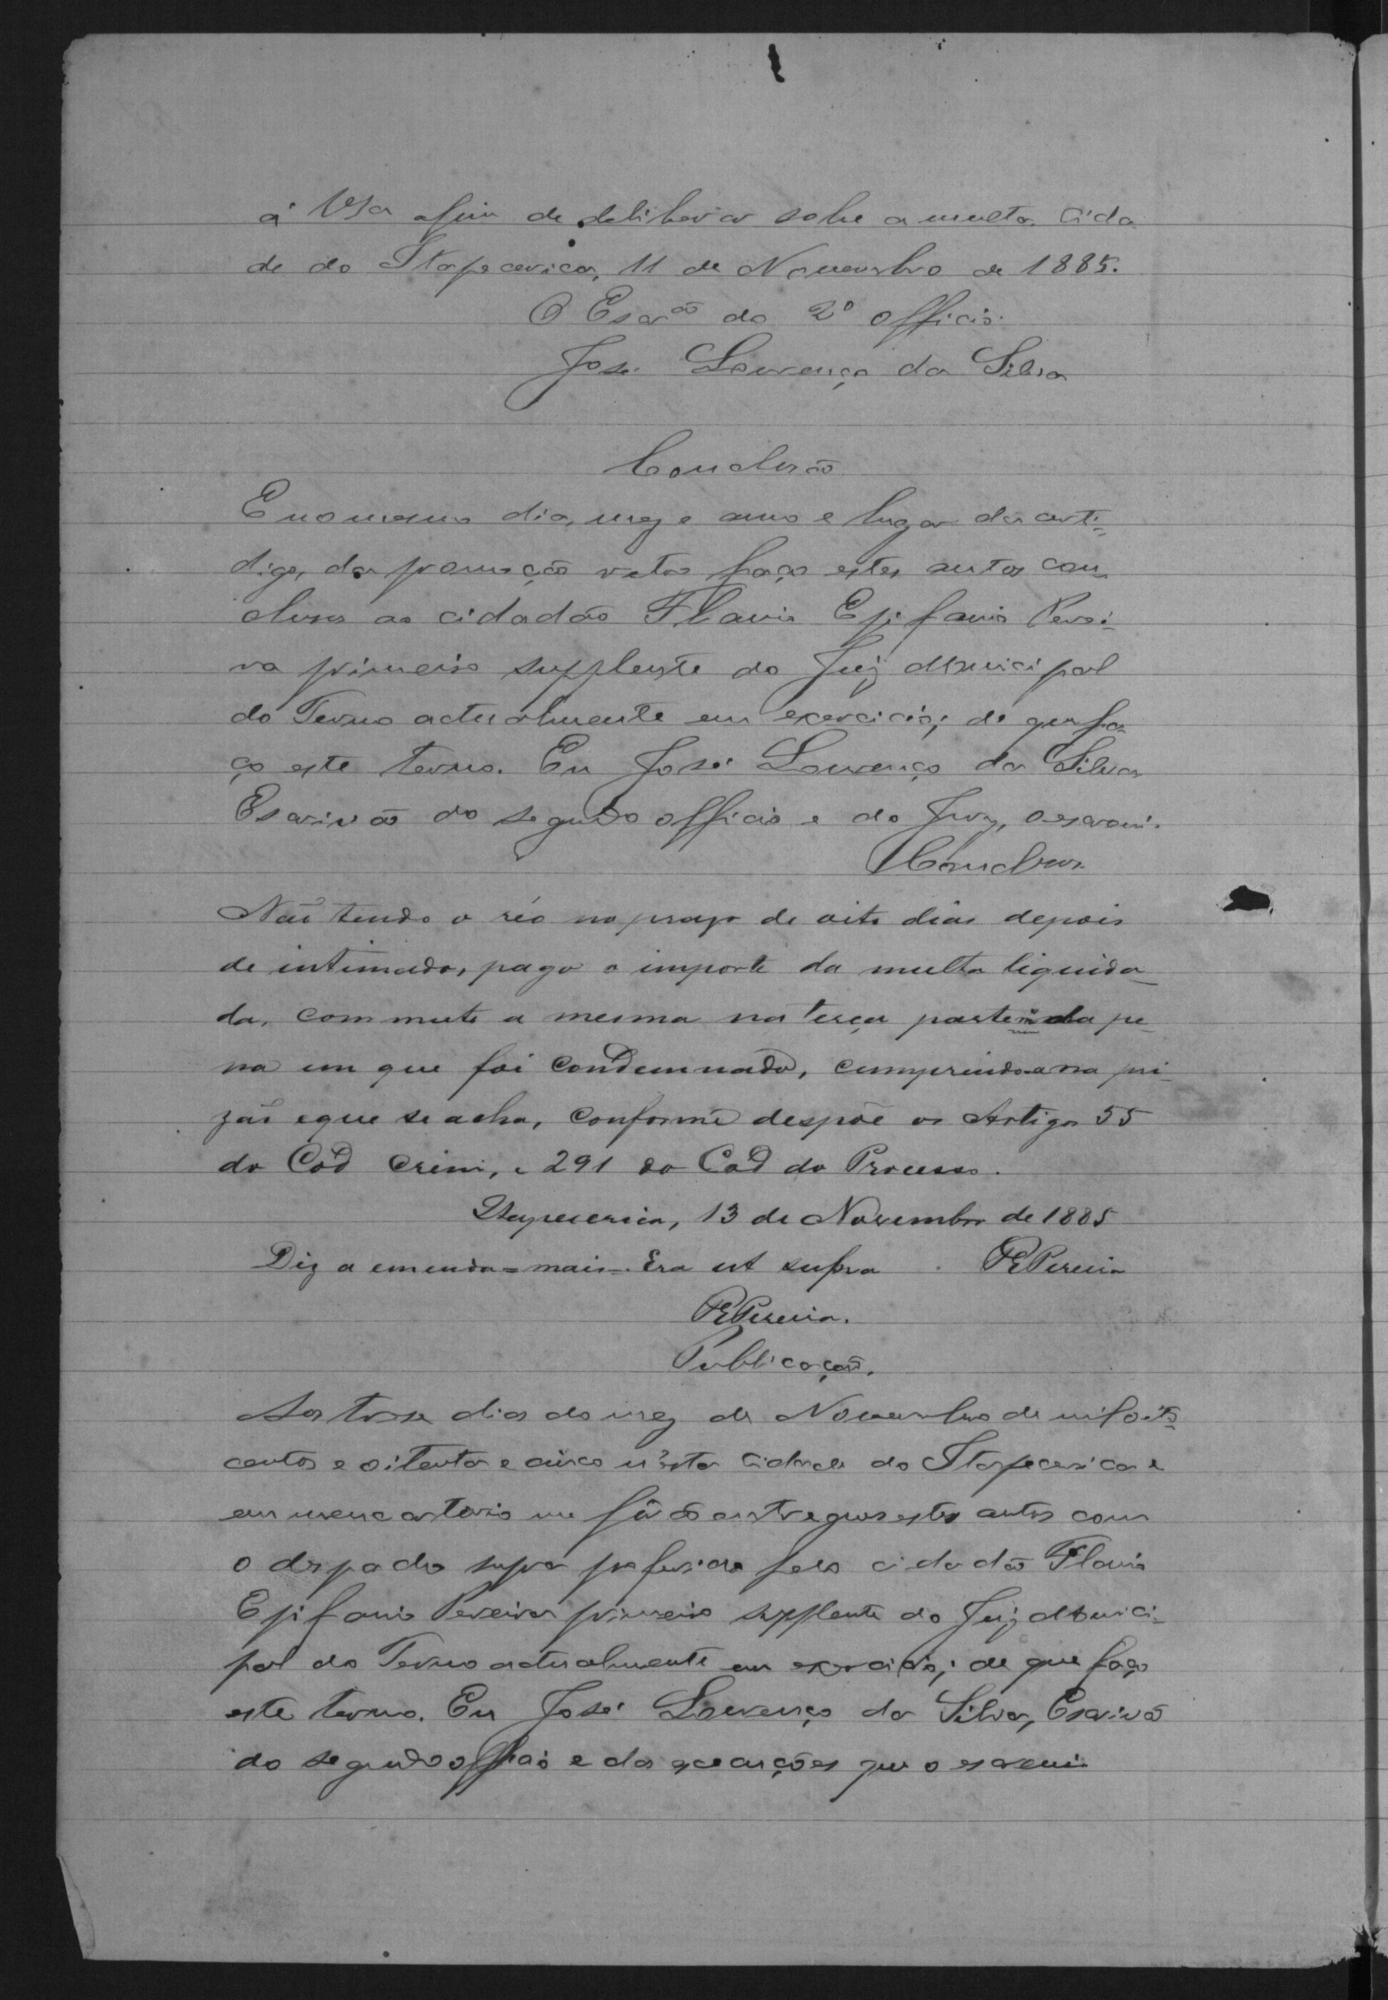 á VSa afim de deliberar sobre a multa. Cida
de do Itapecerica, 11 de Novembro de 1885.
O Escrão do 2º officio.
José Lourenço da Silva
Conclusão
E no mesmo dia, mez e anno e lugar da certi=
digo, da promoção retro faço estes autos con
clusos ao cidadão Flavio Epifanio Perei-
ra primeiro supplente do Juiz Municipal
do Termo actualmente em exercicio; de que fa
ço este termo. Eu José Lourenço da Silva
Escrivão do segundo officio e do Jury, o escrevi.
Conclusos
Não tendo o réo no prazo de oito dias depois
de intimado, pago o importe da multa liquida
da, commuto a mesma na terça parte mais da pe
na em que foi condemnado, cumprindo-a na pri
zão eque se acha, conforme despõe os Artigos 55
do Cod Crim, e 291 do Cod do Processo.
Itapecerica, 13 de Novembro de 1885
Diz a emenda = mais =. Era ut supra FEPereira
FEPereira.
Publicação.
Aos treze dias do mez de Novembro de mil oito=
centos e oitenta e cinco n'esta Cidade do Itapecerica e
em meu cartorio me forão entregues estes autos com
o despacho supra proferido pelo cidadão Flavio
Epifanio Pereira primeiro supplente do Juiz Munici-
pal do Termo actualmente em exercicio; de que faço
este termo. Eu José Lourenço da Silva, Escrivão
do segundo officio e das execuções que o escrevi